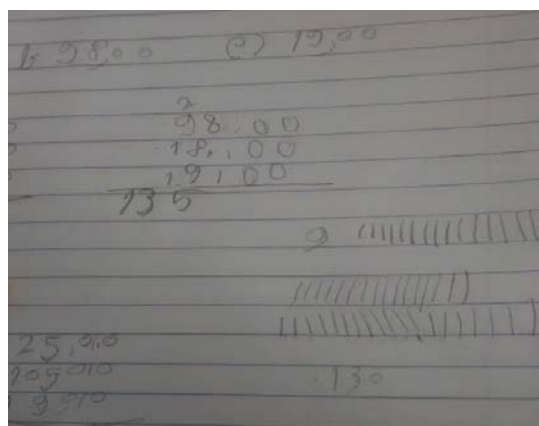 b 98,00 c) 19,00
2
98,00
18,00
19,00
135
9
25,00
105,00
9,00
130